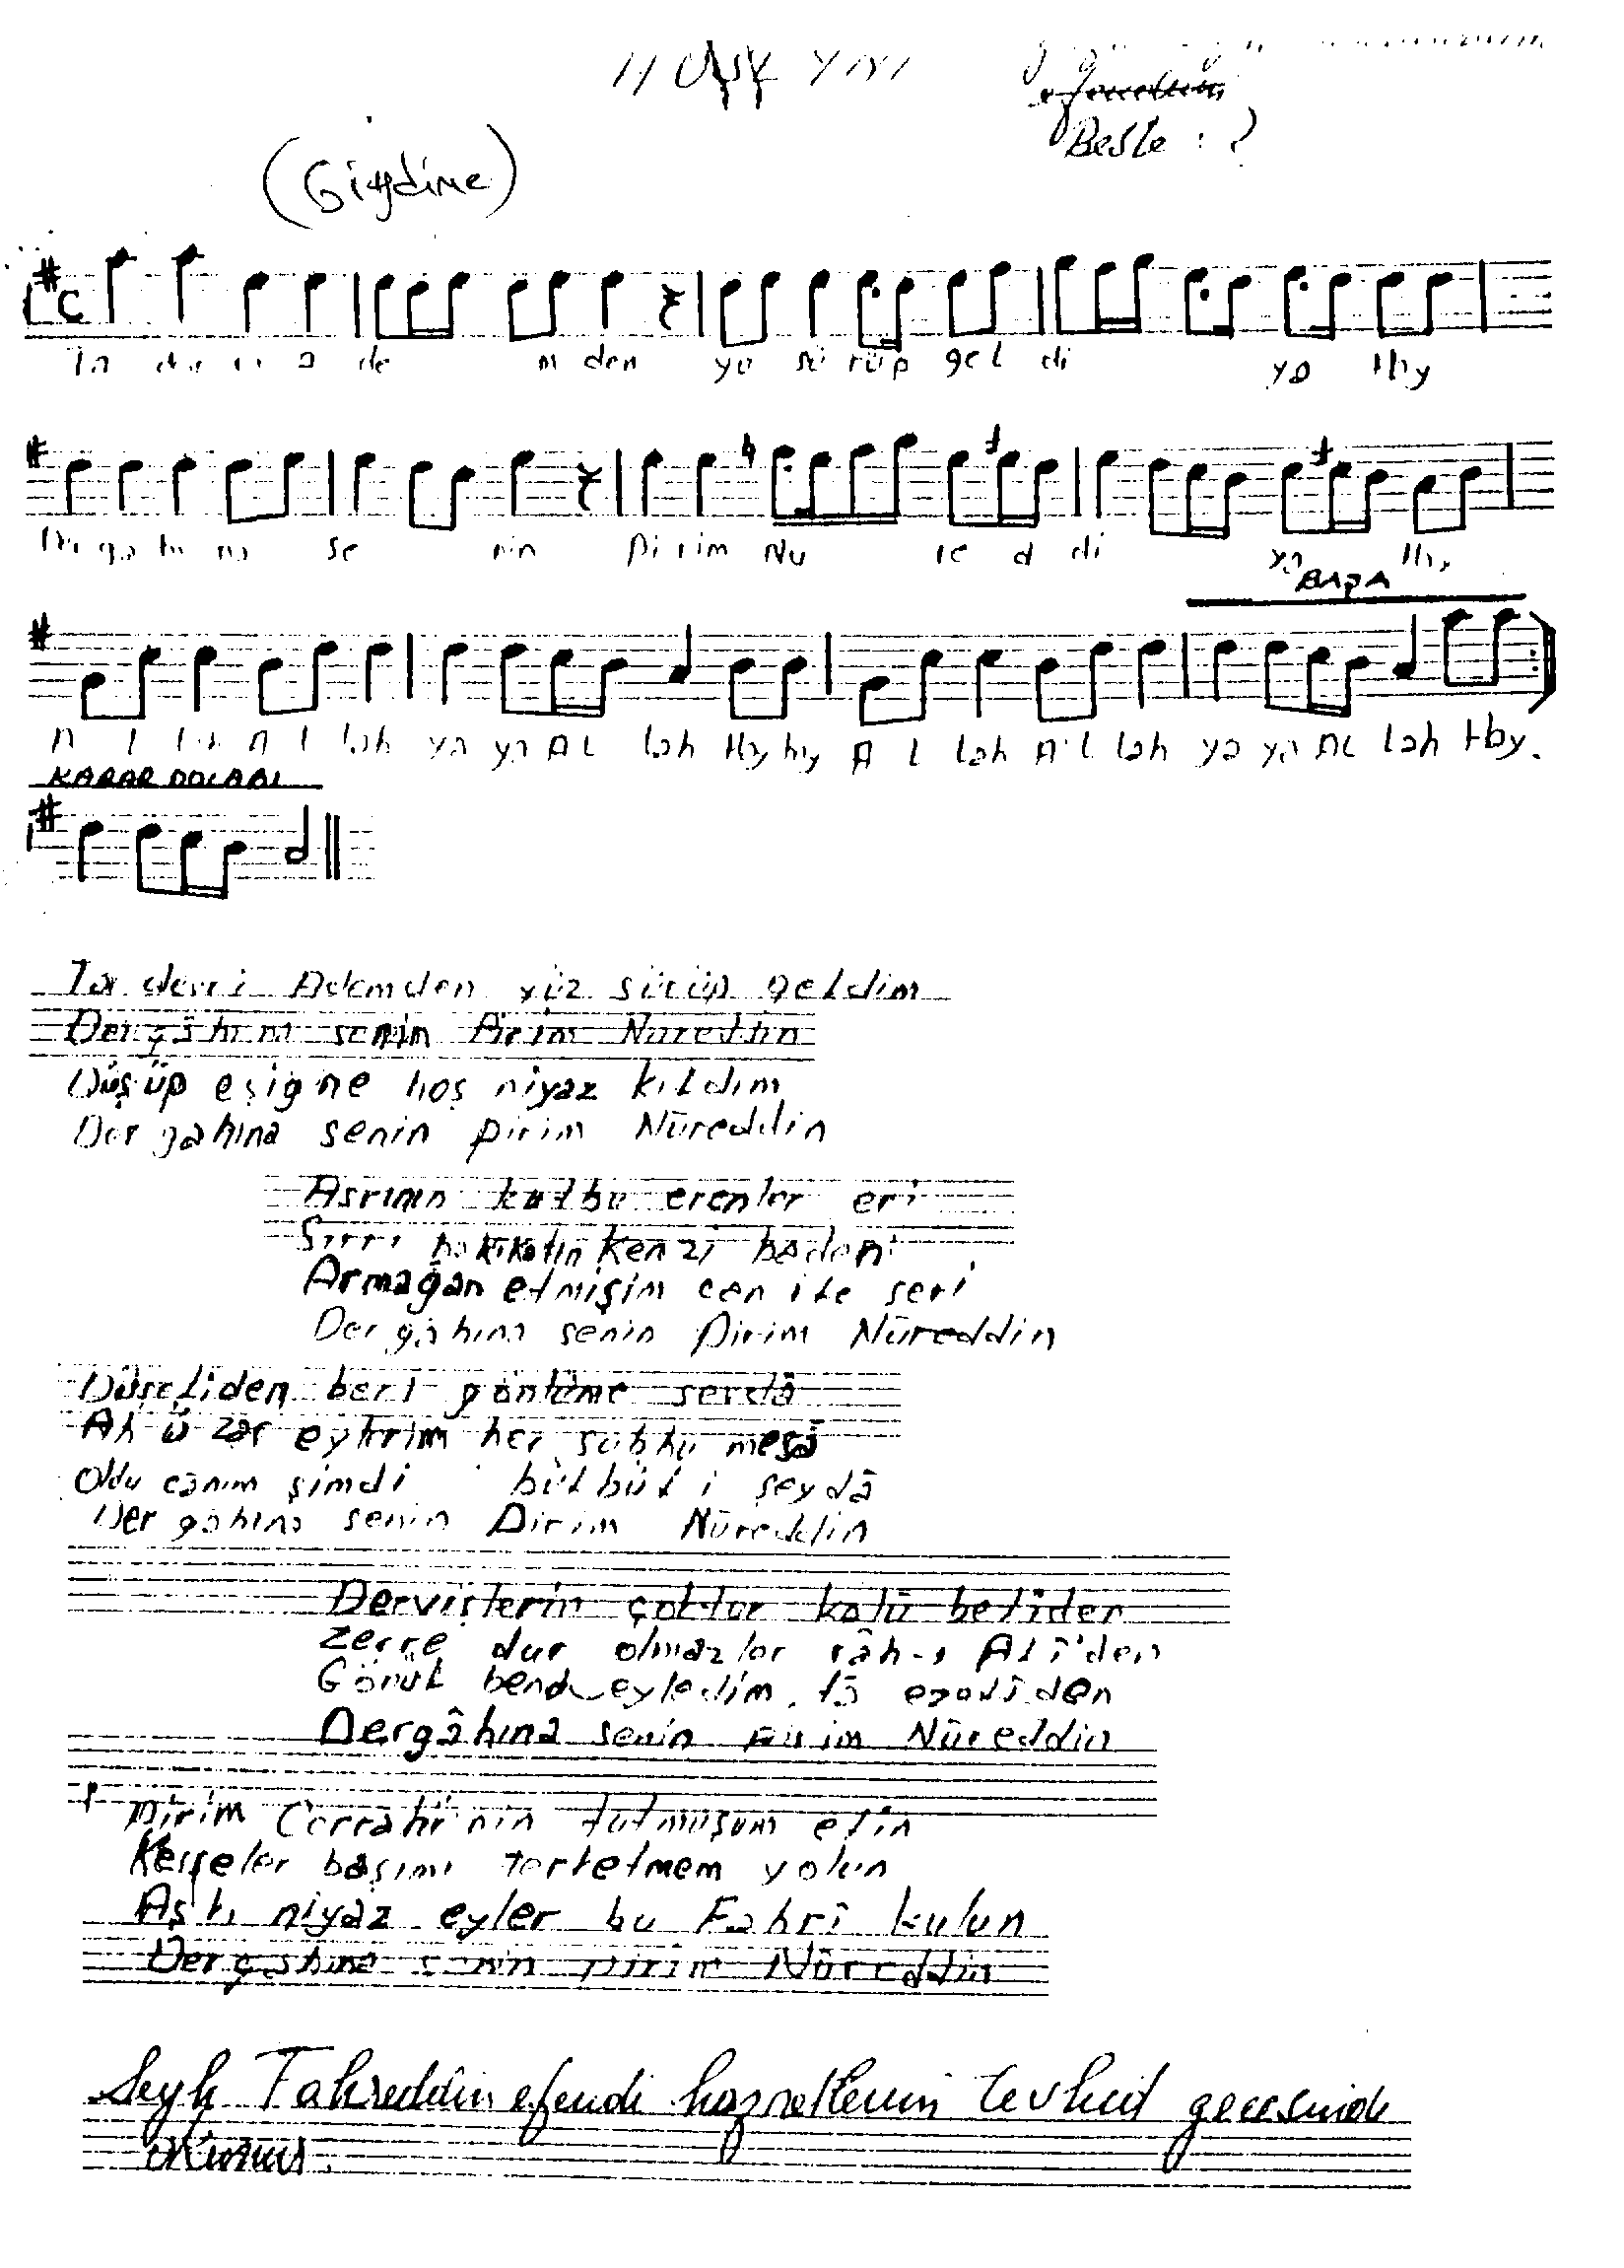 Beste : ?
(Giydime)
de m den yü sü rüp gel di ya Hay
na se nin pi rim Nu re d di ya Hay
BAŞA
A l lah A l lah ya ya AL lah Hay hay A l lah A l lah ya ya AL lah Hay.
KARAR DOLABI
Ta devri Ademden yüz sürüp geldim
Dergâhına senin Pirim Nureddin
Düşüp eşigne hoş niyaz kıldım
Dergahına senin pirim Nūreddin
Asrının kutbu erenler eri
Sırrı hakikatin Kenzi
Armağan etmişim can ile seri
Dergâhına senin Pirim Nūreddin
Düşeliden beri gönlüme sevdâ
Ah ü zar eylerim her subhu mesâ
Oldu canım şimdi bülbül i şeydâ
Dergâhına senin Pirim Nūreddin
Dervişlerin çoktur kalū beliden
Zerre dur olmazlar râh-ı Alî'den
Gönül bend eyledim tâ ezelîden
Dergâhına senin Pirim Nûreddin
Pirim Cerrahi'nin tutmuşum elin
Kesseler başımı terketmem yolun
Aşkı niyaz eyler bu Fahrî kulun
Dergahına senin pirim Nûreddin
Şeyh Fahreddin efendi hazretlerinin tevhid gecesinde